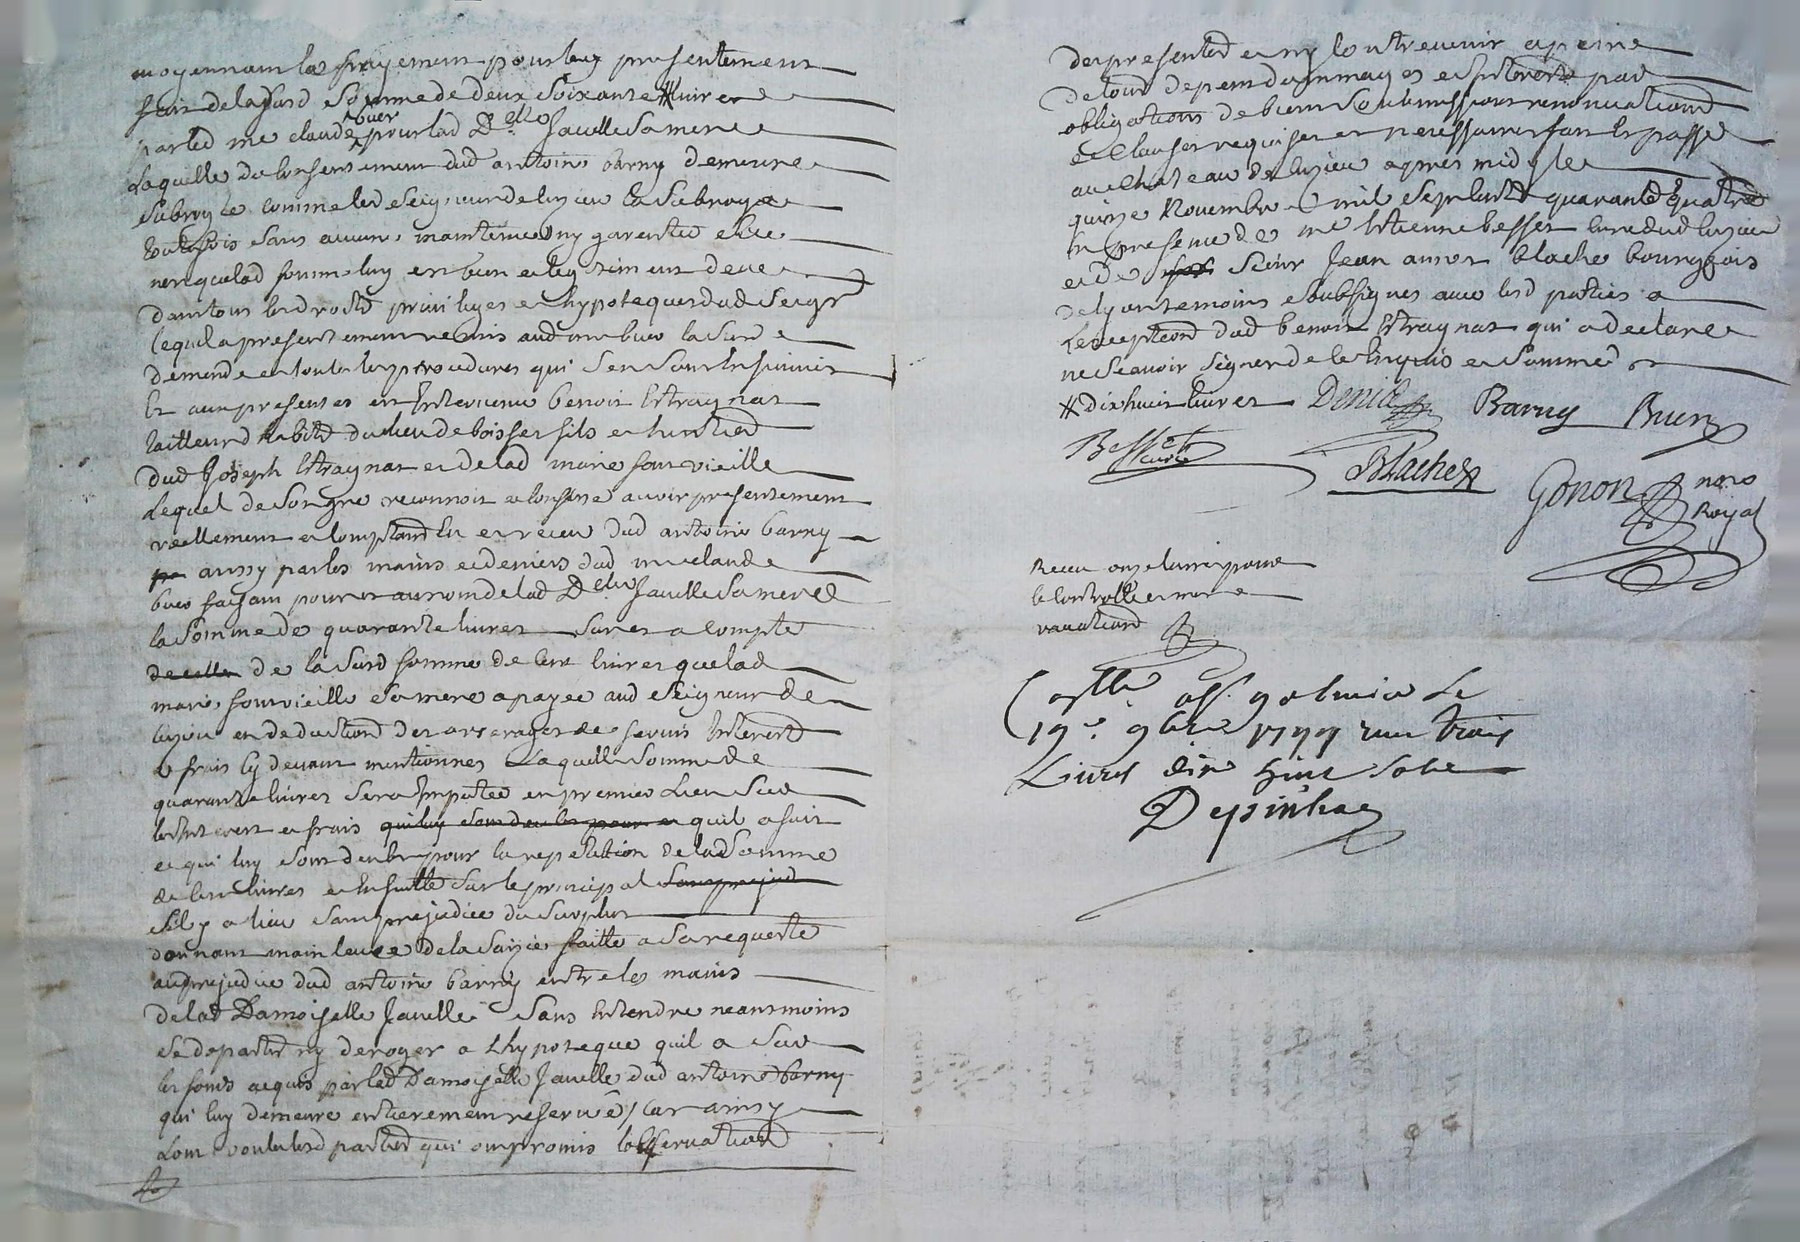 moyennant les payement pour luy presentement
fait de lad susd somme de deux soixante # livre
par led me claude buer pour lad Dlle Javelle sa mere
laquelle du consentement dud antoine barny demeure
subrogée comme led seigneur de luzieu la subroge
toutesfois sans aucune maintenue ny garentie si ce
nest que lad somme luy est bien et legitimement deue
dans tous les droits privileges et hypoteques dud seigr
lequel a presentement remis aud me buer la susd
demande et toutes les procedures qui s'en sont ensuivies
Et aux presentes est Intervenu benoit Estragnat
tailleur d habits du lieu de boisset fils et heritier
dud Joseph Estragnat et de lad marie fontvieille
lequel de son gre reconnoit et confesse avoir presentement
reellement et comptant eu et receu dud antoine barny
aussy par les mains et deniers dud me claude
buer faisant pour et au nom de lad Dlle Javelle sa mere
la somme de quarante livres sur et a compte
de celle de la susd somme de cent livres que lad
marie fontvieille sa mere a payee aud seigneur de
luzieu en deduction des arrerages de servis Interest
et frais cy devant mentionnes Laquelle somme de
quarante livres sera Imputée en premier Lieu sur
les Interest et frais qui luy sont deubs pour et quil a fait
et qui luy sont deubs pour la repetition de lad somme
de cent livres et Ensuitte sur le principal sans prejud
sil y a lieu sans prejudice du surplus
donnant main levee de la saisie faitte a sa requeste
au prejudice dud antoine barny entre les mains
de lad Damoiselle Javelle sans Entendre neansmoins
se departir ny deroger a Lhypoteque quil a sur
les fonds acquis par lad Damoiselle Javelle dud antoine barny
qui luy demeure entierement reservé / Car ainsy
Lont voulu lesd parties qui ont promis lobservation
des presentes et ny contrevenir a peine
de tous depens dommages et Interests par
obligations de biens soubmissions renonciations
et clauses requises et necessaires fait et passé
au chateau de luzieu apres midy le
quinze Novembre mil sept cent quarante quatre
En presence de me Etienne besset curé dud luzieu
et de sieur Jean annet blache bourgeois
de lyon temoins soubsignes avec lesd parties a
Lexception dud benoit Estragnat qui a declaré
ne scavoir signer de ce Enquis et sommé
# dix huit livres Denis Barny Buer
Besset curé Blache Gonon nore Royal
Receu onze livres pour
le controlle et mes
vacations
Conlle a St galmier Le
19e 9bre 1744 recu trois
Livres dix huit sols
Depinhac